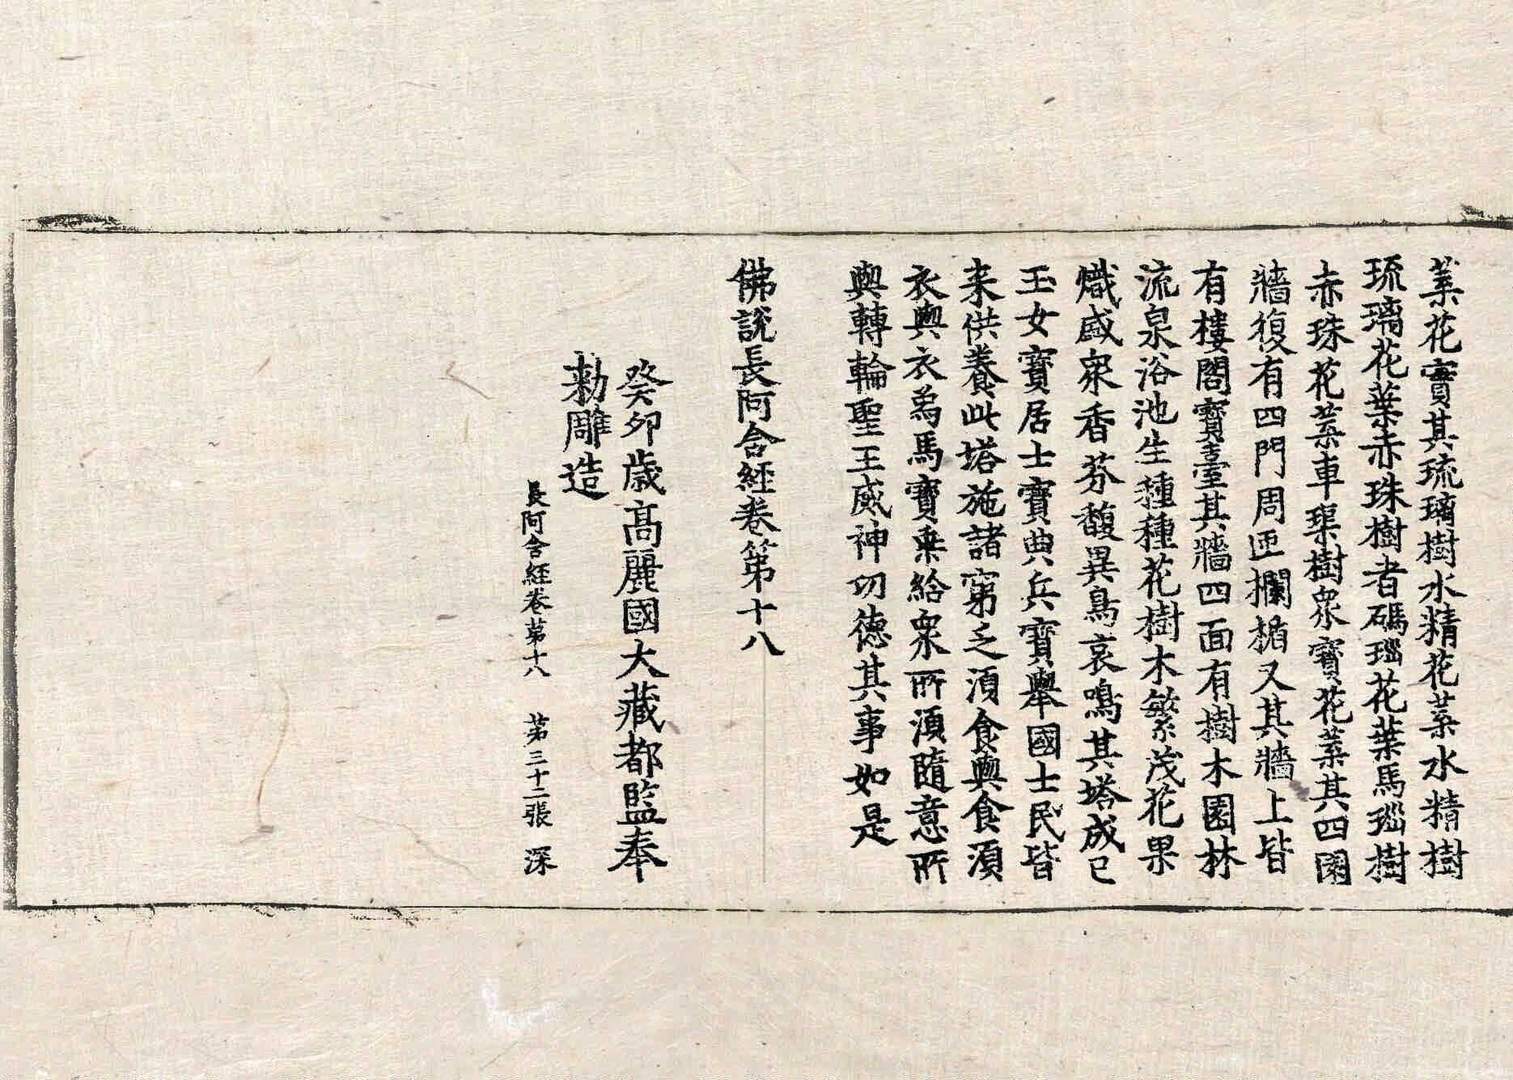 葉花實其琉璃樹水精花葉水精樹
琉璃花葉赤珠樹者碼瑙花葉馬瑙樹
赤珠花葉車渠樹衆寶花葉其四園
牆復有四門周匝欄楯又其牆上皆
有樓閣寶臺其牆四面有樹木園林
流泉浴池生種種花樹木繁茂花果
熾盛衆香芬馥異鳥哀鳴其塔成已
玉女寶居士寶典兵寶舉國士民皆
来供養此塔施諸窮乏湏食與食湏
衣與衣象馬寶乘給衆所湏隨意所
與轉輪聖王威神功德其事如是
佛說長阿含經卷第十八
癸卯歲高麗國大藏都監奉
勅雕造
長阿含經卷第十八 第三十二張 深